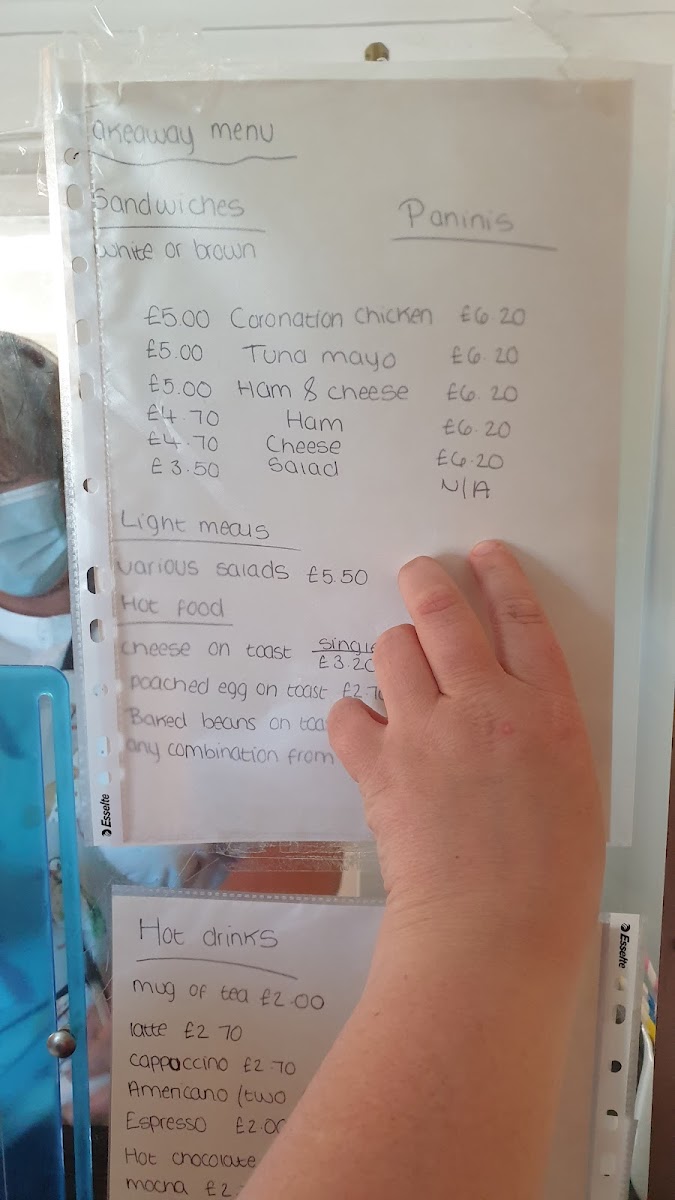 akeaway menu
Sandwiches Paninis
white or brown
£5.00 Coronation Chicken £6.20
£5.00 Tuna mayo £6.20
£5.00 Ham & cheese £6.20
£4.70 Ham £6.20
£4.70 Cheese £6.20
£3.50 Salad N/A
Light meals
various salads £5.50
Hot food
cheese on toast single
£3.20
poached egg on toast £2.70
Baked beans on toa
any combination from
Esselte
Hot drinks
Esselte
mug of tea £2.00
latte £2.70
cappuccino £2.70
Americano (two
Espresso £2.00
Hot chocolate
mocha £2.